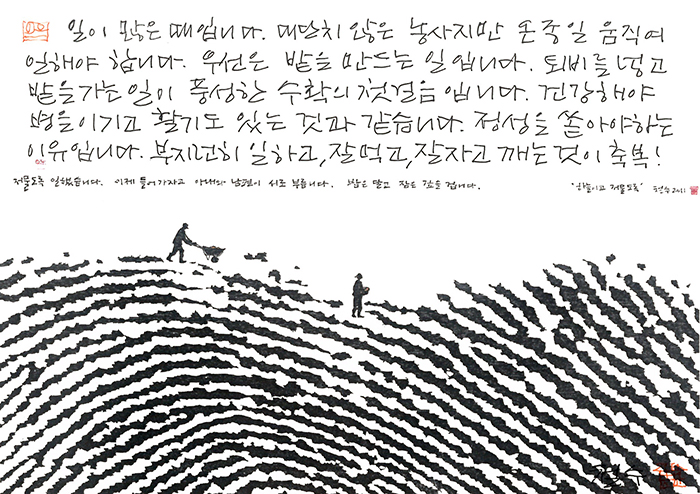 일이 많은 때입니다. 대단치 않은 농사지만 온종일 움직여
일해야 합니다. 우선은 밭을 만드는 일입니다. 퇴비를 넣고
밭을 가는 일이 풍성한 수확의 첫걸음입니다. 건강해야
병을 이기고 활기도 있는 것과 같습니다. 정성을 쏟아야하는
이유입니다. 부지런히 일하고, 잘 먹고, 잘 자고 깨는 것이 축복!
저물도록 일했습니다. 이제 들어가자고 아내와 남편이 서로 부릅니다. 말고 길을 겁니다. '하늘이고 저물도록' 철수 2011
철수